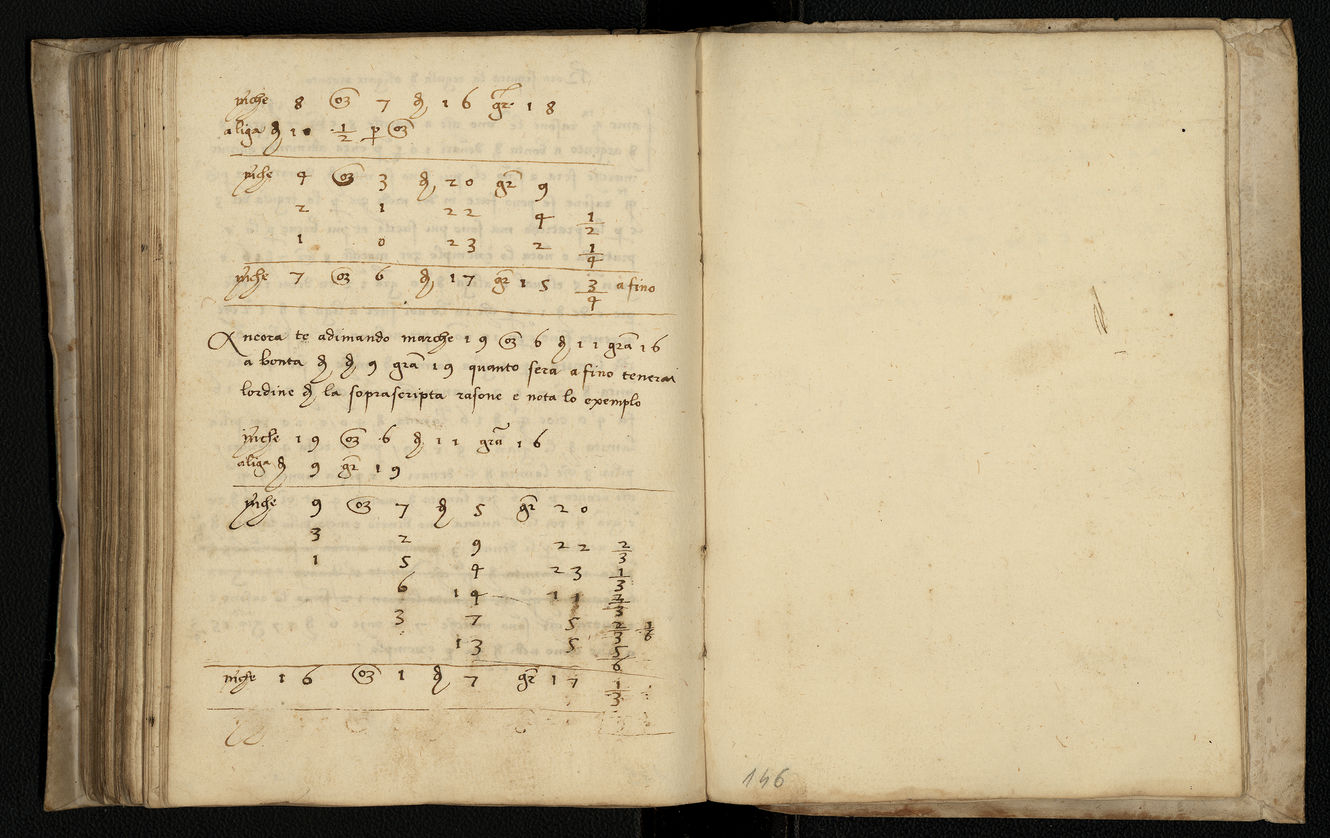 mche 8 oz 7 d 16 gr 18
aliga d 10 1/2 p oz
mche 4 oz 3 d 20 gr 9
2 1 22 4 1/2
1 0 23 2 1/4
mche 7 oz 6 d 17 gr 15 3/4 a fino
Ancora te adimando marche 19 oz 6 d 11 gra 16
a bonta d d 9 gra 19 quanto sera a fino tenerai
lordine d la soprascripta rasone e nota lo exemplo
mche 19 oz 6 d 11 gra 16
aliga d 9 gr 19
mche 9 oz 7 d 5 gr 20
3 2 9 22 2/3
1 5 4 23 1/3
6 14 11 2/3
3 7 5 2/3 1/6
13 5 5/6
mche 16 oz 1 d 7 gr 17 1/3
146